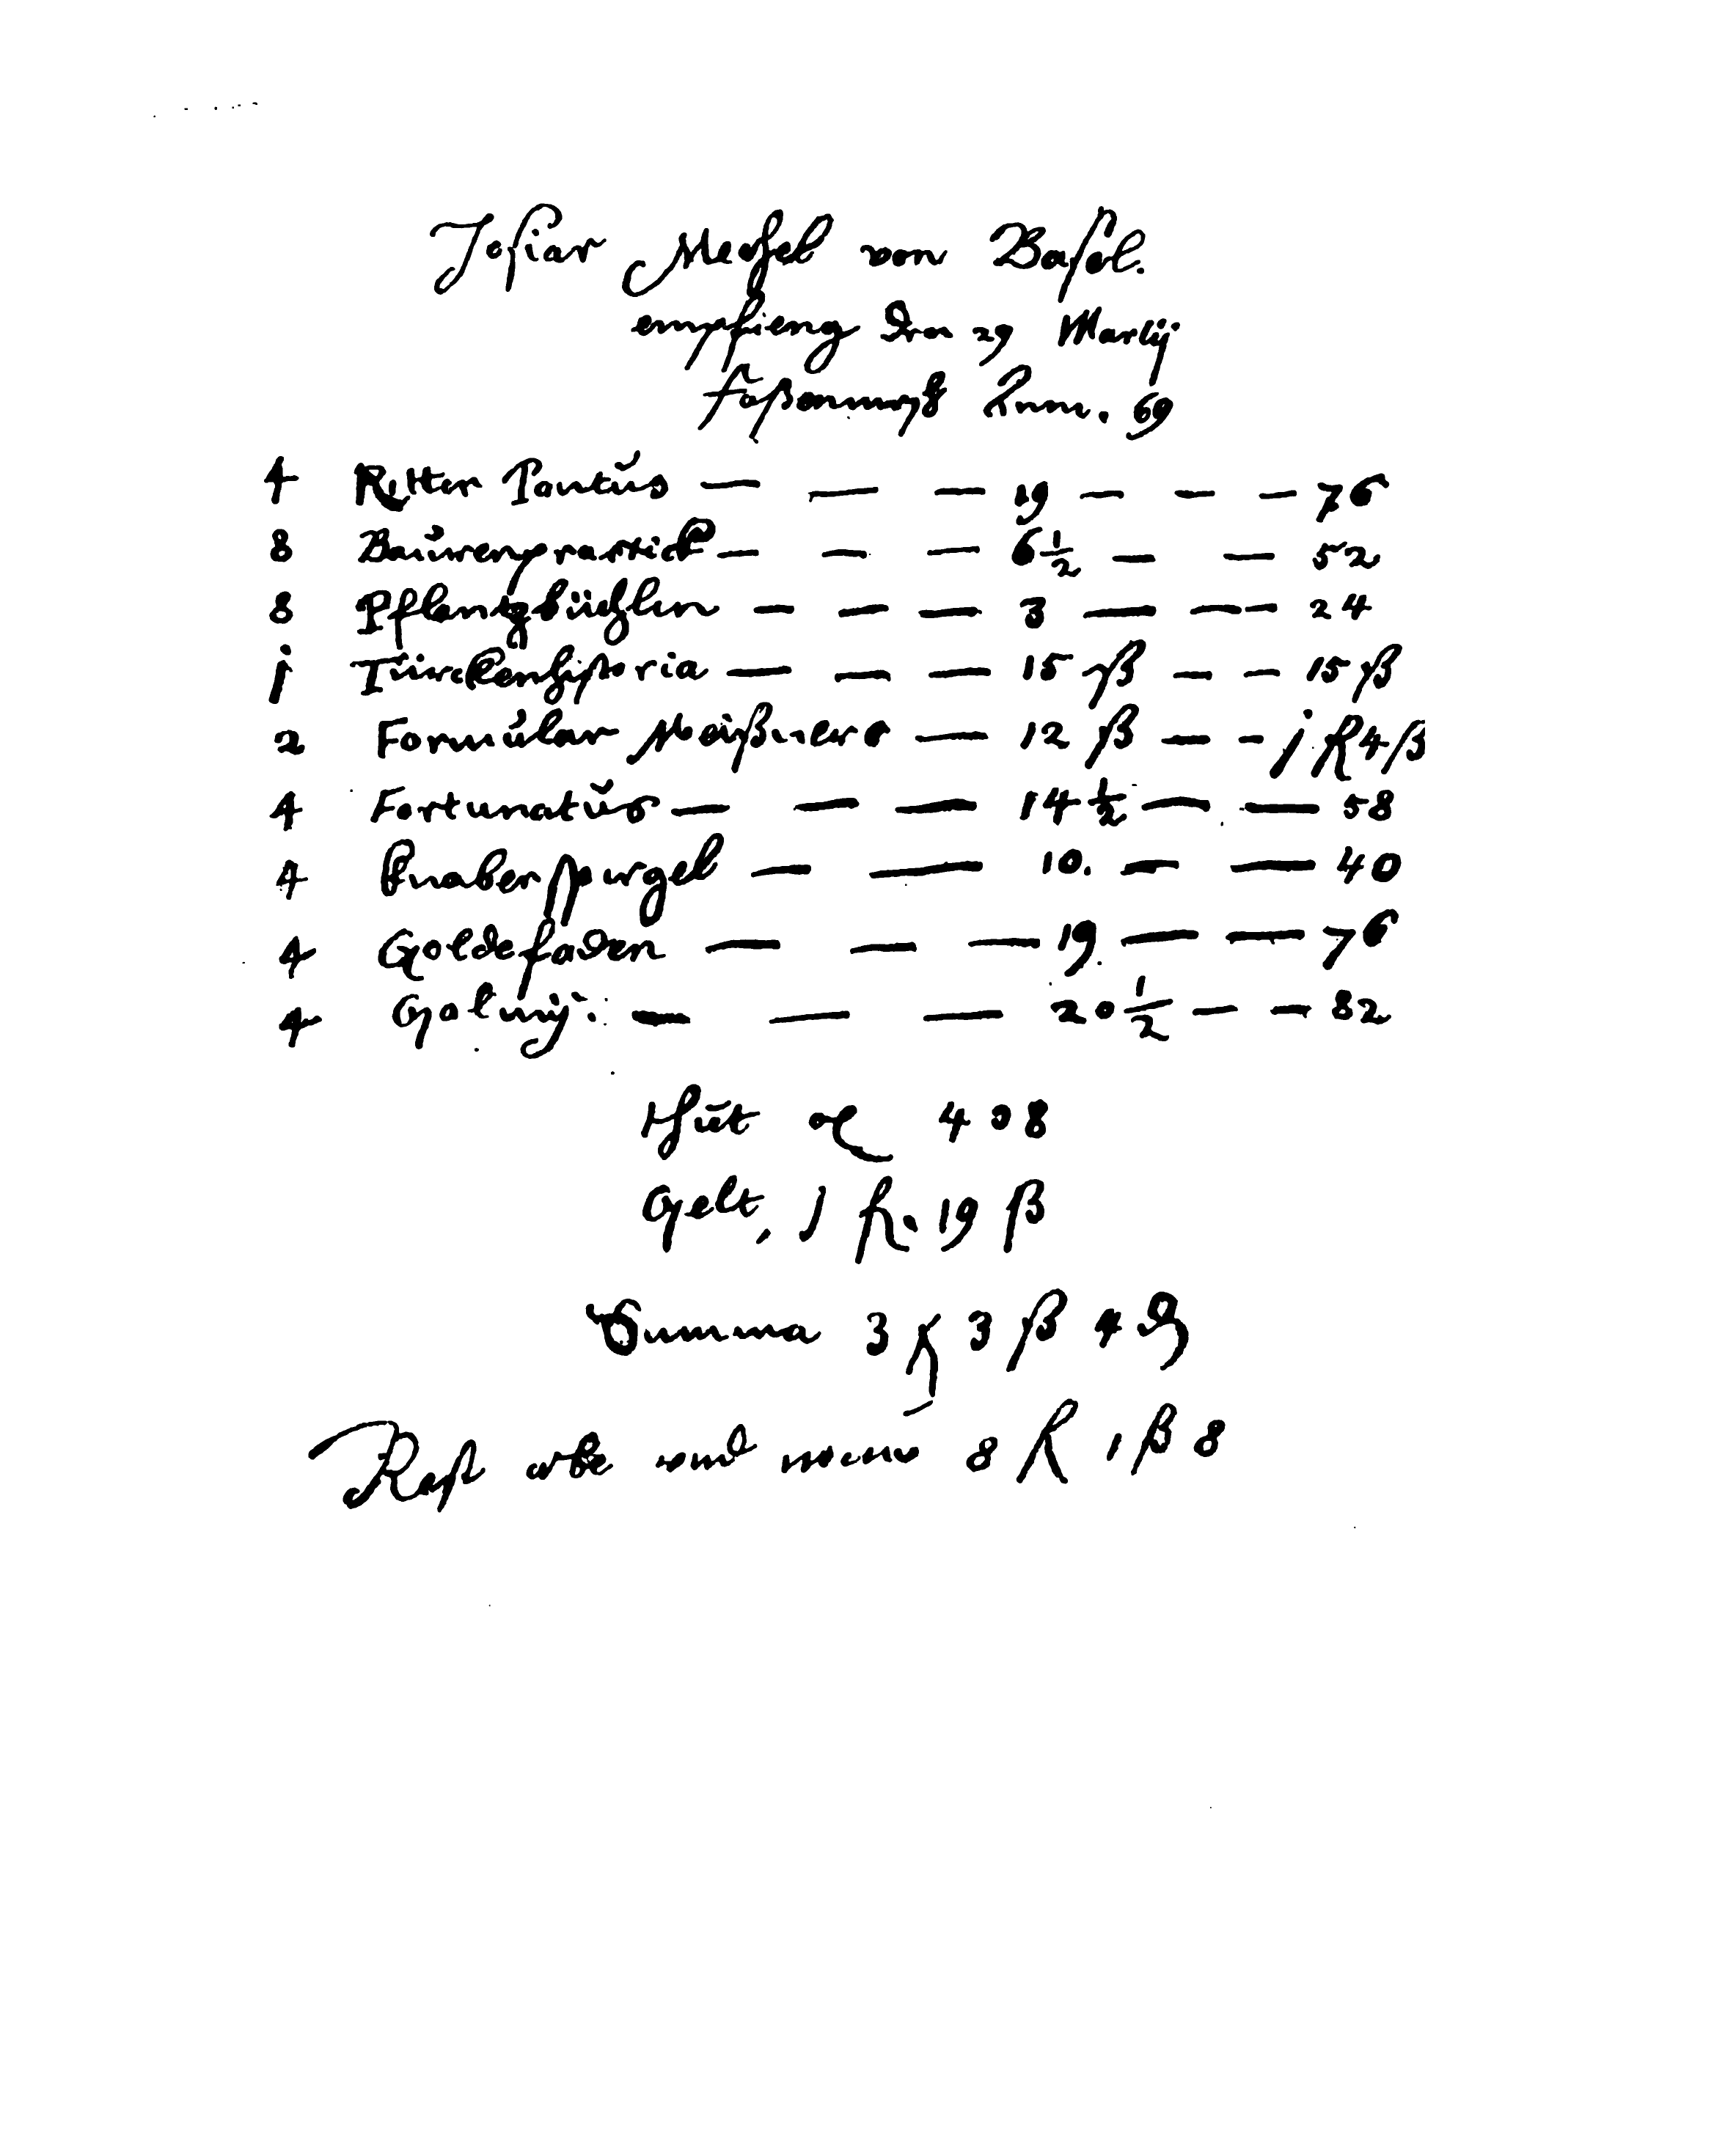 Josias Mechel von Basel.
empfieng den 29 Martij
Faßenmeß Anno. 69
4 Ritter Pontus — — — 19 — — — 76
8 Baürenpractick — — — 6 1/2 — — 52
8 Pflantzbüchlin — — — 3 — — — 24
j Türckenhistoria — — — 15 ß — — 15 ß
2 Formülar Meißners — 12 ß — - j fl 4 ß
4 Fortunatüs — — — 14 1/2 — — 58
4 Knabenspiegel — — 10. — — 40
4 Goldtfaden — — — 19 — — 76
4 Galmÿ: — — — 20 1/2 — — 82
thüt 408
Gelt, j fl. 19 ß
Summa 3 fl 3 ß 4 ₰
Rest alte vnd newe 8 fl 1 ß 8